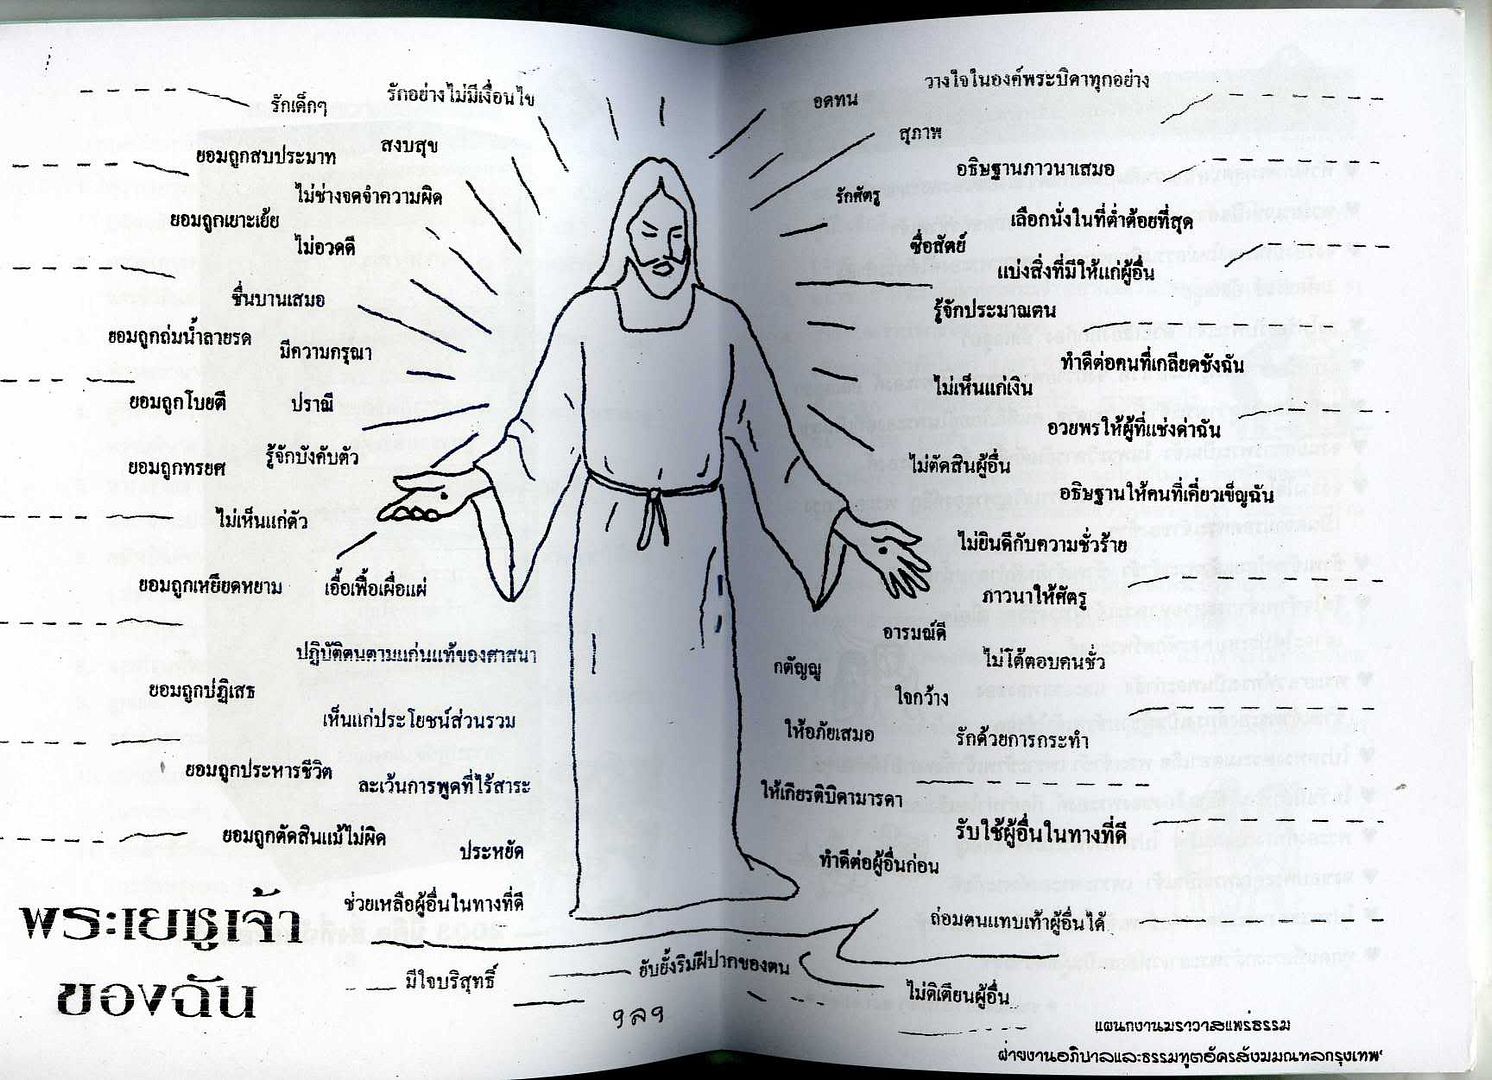 รักเด็กๆ
รักอย่างไม่มีเงื่อนไข
ยอมถูกสบประมาท
สงบสุข
ไม่ช่างจดจำความผิด
ยอมถูกเยาะเย้ย
ไม่อวดดี
ชื่นบานเสมอ
ยอมถูกถ่มน้ำลายรด
มีความกรุณา
ยอมถูกโบยตี
ปราณี
ยอมถูกทรยศ
รู้จักบังคับตัว
ไม่เห็นแก่ตัว
ยอมถูกเหยียดหยาม
เอื้อเฟื้อเผื่อแผ่
ปฏิบัติตนตามแก่นแท้ของศาสนา
ยอมถูกปฏิเสธ
เห็นแก่ประโยชน์ส่วนรวม
ยอมถูกประหารชีวิต
ละเว้นการพูดที่ไร้สาระ
ยอมถูกตัดสินแม้ไม่ผิด
ประหยัด
ช่วยเหลือผู้อื่นในทางที่ดี
พระเยซูเจ้า
ของฉัน
มีใจบริสุทธิ์
ยับยั้งริมฝีปากของตน
วางใจในองค์พระบิดาทุกอย่าง
อดทน
สุภาพ
อธิษฐานภาวนาเสมอ
รักศัตรู
เลือกนั่งในที่ต่ำต้อยที่สุด
ซื่อสัตย์
แบ่งสิ่งที่มีให้แก่ผู้อื่น
รู้จักประมาณตน
ทำดีต่อคนที่เกลียดชังฉัน
ไม่เห็นแก่เงิน
อวยพรให้ผู้ที่แช่งด่าฉัน
ไม่ตัดสินผู้อื่น
อธิษฐานให้คนที่เคี่ยวเข็ญฉัน
ไม่ยินดีกับความชั่วร้าย
ภาวนาให้ศัตรู
อารมณ์ดี
ไม่โต้ตอบคนชั่ว
กตัญญู
ใจกว้าง
ให้อภัยเสมอ
รักด้วยการกระทำ
ให้เกียรติบิดามารดา
รับใช้ผู้อื่นในทางที่ดี
ทำดีต่อผู้อื่นก่อน
ถ่อมตนแทบเท้าผู้อื่นได้
ไม่ติเตียนผู้อื่น
ฯลฯ
แผนกงานฆราวาสแพร่ธรรม
ฝ่ายงานอภิบาลและธรรมทูตอัครสังฆมณฑลกรุงเทพฯ